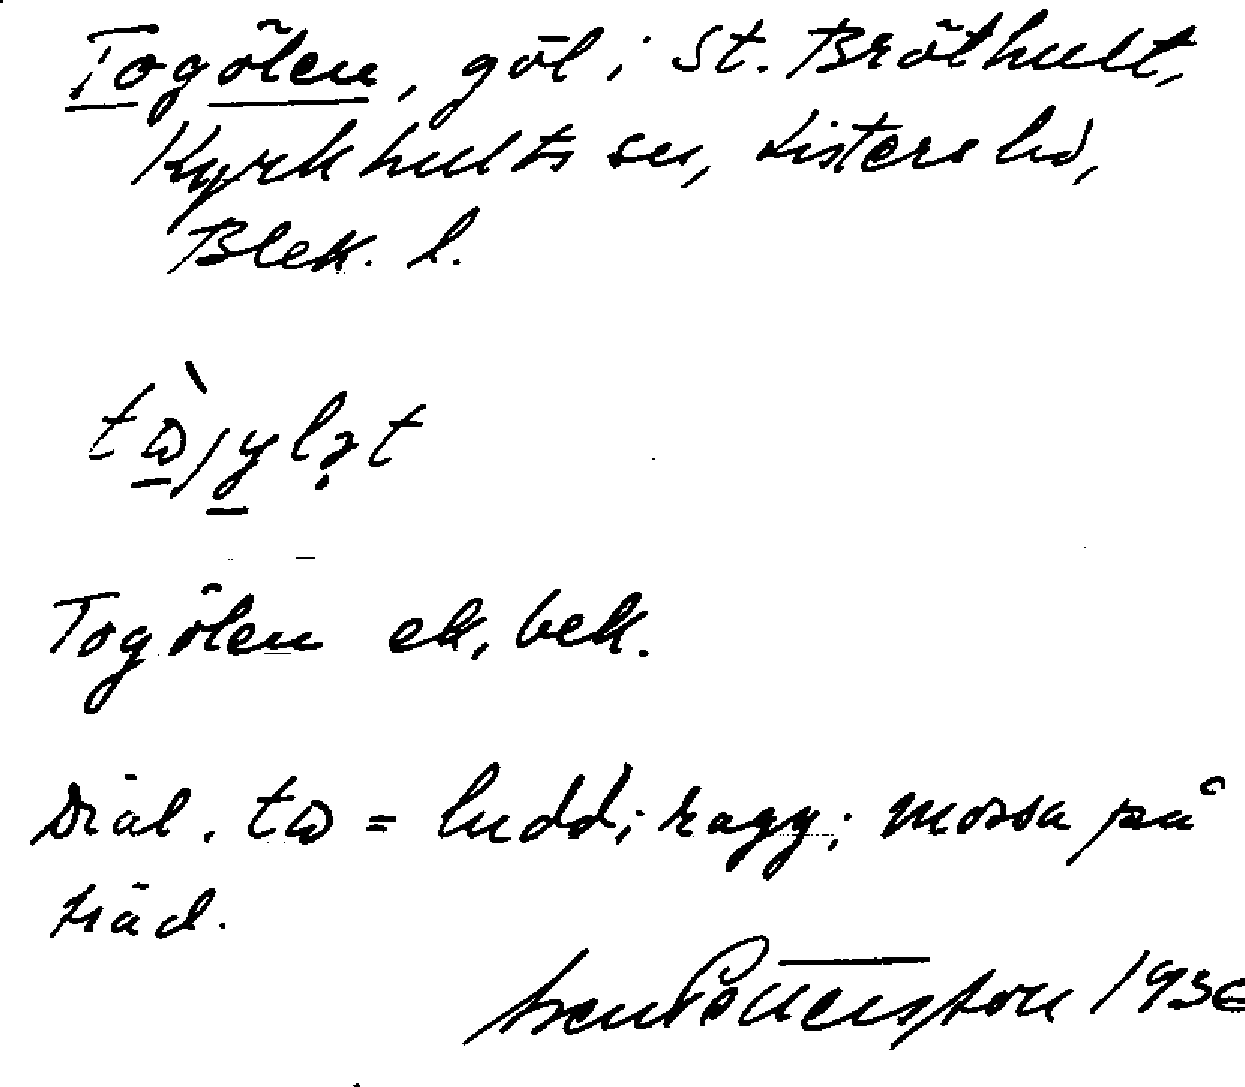 Togölen, göl i St. Bröthult,
Kyrkhults sn, Listers hd,
Blek. l.
Togölen ek, bek.
Dial. tɷ = ludd; ragg; mossa på
träd.
Sven Pettersson 1936